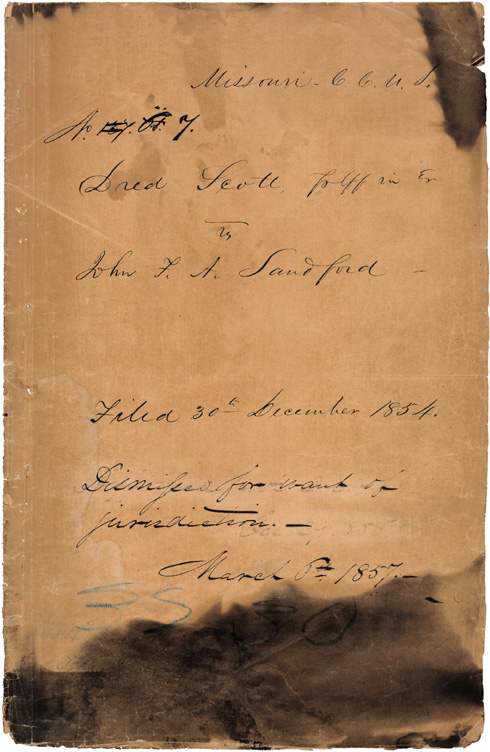 Missouri - C. C. U. S.
No. 7.
Dred Scott, Plff in Er
vs
John F. A. Sandford -
Filed 30th December 1854.
Dismissed for want of
jurisdiction. -
March 6th 1857. -
3S 30